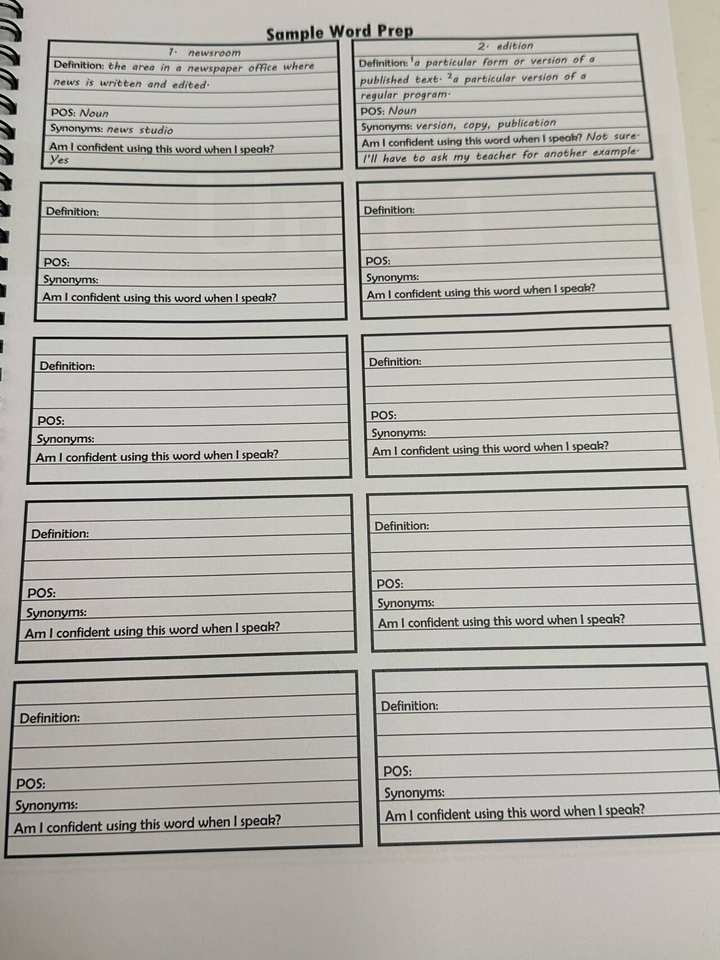 Sample Word Prep
1. newsroom
Definition: the area in a newspaper office where
news is written and edited.
POS: Noun
Synonyms: news studio
Am I confident using this word when I speak?
Yes
2. edition
Definition: ¹a particular form or version of a
published text. ²a particular version of a
regular program.
POS: Noun
Synonyms: version, copy, publication
Am I confident using this word when I speak? Not sure.
I'll have to ask my teacher for another example.
Definition:
POS:
Synonyms:
Am I confident using this word when I speak?
Definition:
POS:
Synonyms:
Am I confident using this word when I speak?
Definition:
POS:
Synonyms:
Am I confident using this word when I speak?
Definition:
POS:
Synonyms:
Am I confident using this word when I speak?
Definition:
POS:
Synonyms:
Am I confident using this word when I speak?
Definition:
POS:
Synonyms:
Am I confident using this word when I speak?
Definition:
POS:
Synonyms:
Am I confident using this word when I speak?
Definition:
POS:
Synonyms:
Am I confident using this word when I speak?